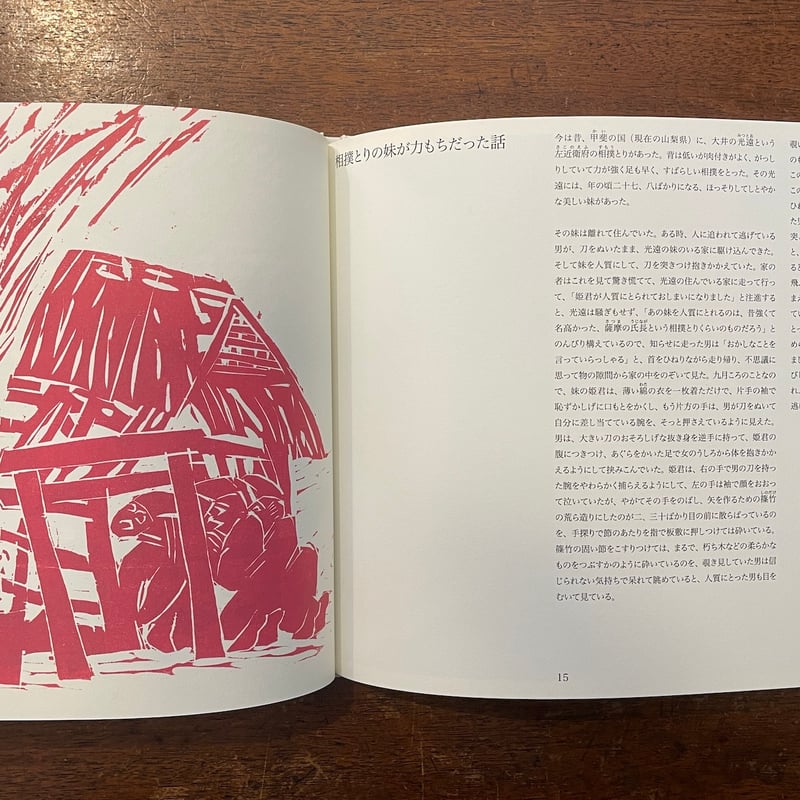 相撲とりの妹が力もちだった話
今は昔、甲斐の国（現在の山梨県）に、大井の光遠という
左近衛府の相撲とりがあった。背は低いが肉付きがよく、がっし
りしていて力が強く足も早く、すばらしい相撲をとった。その光
遠には、年の頃二十七、八ばかりになる、ほっそりしてしとやか
な美しい妹があった。
その妹は離れて住んでいた。ある時、人に追われて逃げている
男が、刀をぬいたまま、光遠の妹のいる家に駆け込んできた。
そして妹を人質にして、刀を突きつけ抱きかかえていた。家の
者はこれを見て驚き慌てて、光遠の住んでいる家に走って行っ
て、「姫君が人質にとられておしまいになりました」と注進する
と、光遠は騒ぎもせず、「あの妹を人質にとれるのは、昔強くて
名高かった、薩摩の氏長という相撲とりくらいのものだろう」と
のんびり構えているので、知らせに走った男は「おかしなことを
言っていらっしゃる」と、首をひねりながら走り帰り、不思議に
思って物の隙間から家の中をのぞいて見た。九月ころのことなの
で、妹の姫君は、薄い綿の衣を一枚着ただけで、片手の袖で
恥ずかしげに口もとをかくし、もう片方の手は、男が刀をぬいて
自分に差し当てている腕を、そっと押さえているように見えた。
男は、大きい刀のおそろしげな抜き身を逆手に持って、姫君の
腹につきつけ、あぐらをかいた足で女のうしろから体を抱きかか
えるようにして挟みこんでいた。姫君は、右の手で男の刀を持っ
た腕をやわらかく捕らえるようにして、左の手は袖で顔をおおっ
て泣いていたが、やがてその手をのばし、矢を作るための篠竹
の荒ら造りにしたのが二、三十ばかり目の前に散らばっているの
を、手探りで節のあたりを指で板敷に押しつけては砕いている。
篠竹の固い節をこすりつけては、まるで、朽ち木などの柔らかな
ものをつぶすかのように砕いているのを、覗き見していた男は信
じられない気持ちで呆れて眺めていると、人質にとった男も目を
むいて見ている。
15